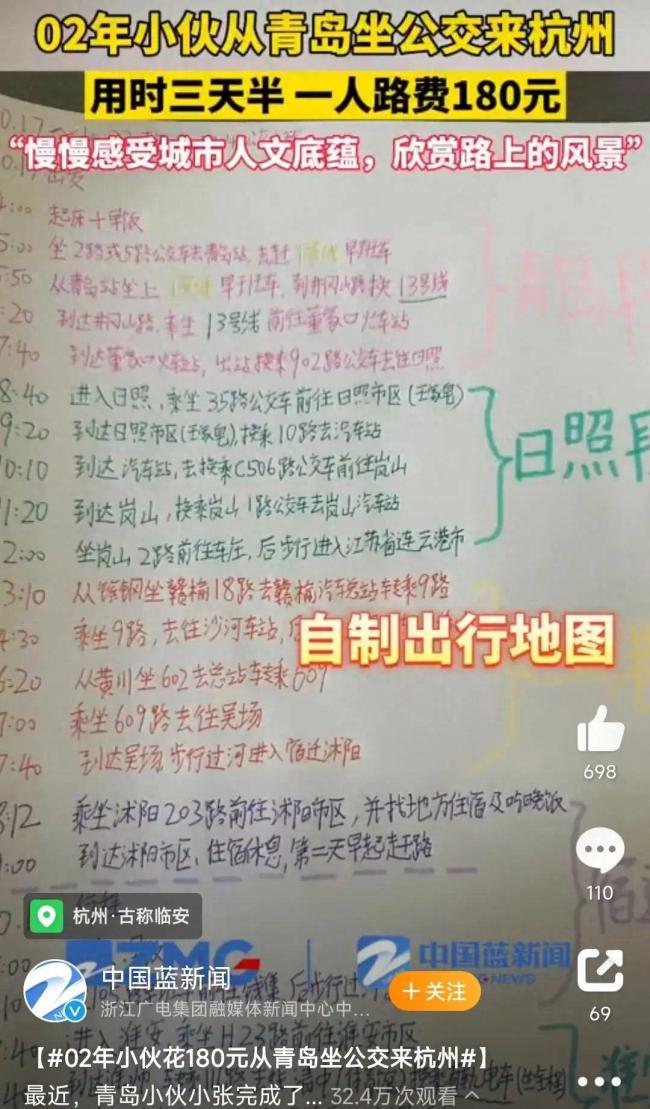 02年小伙从青岛坐公交来杭州
用时三天半 一人路费180元
“慢慢感受城市人文底蕴，欣赏路上的风景”
起床+早饭
5:00 坐2路或5路公交车去青岛站，去赶1号线早班车
5:50 从青岛站坐上1号线早班车，到井冈山路换13号线
:20 到达井冈山路，乘坐13号线前往董家口火车站
7:40 到达董家口火车站，出站换乘902路公交车去往日照
8:40 进入日照，乘坐35路公交车前往日照市区(王家皂)
9:20 到达日照市区(王家皂)，换乘10路去汽车站
0:10 到达汽车站，去换乘C506路公交车前往岚山
1:20 到达岚山，换乘岚山1路公交车去岚山汽车站
2:00 坐岚山2路前往车庄，后步行进入江苏省连云港市
日照段
3:10 从镔钢坐赣榆18路去赣榆汽车总站转乘9路
4:30 乘坐9路，去往沙河车站，
自制出行地图
6:20 从黄川坐602去总站转乘609
7:00 乘坐609路去往吴场
7:40 到达吴场步行过河进入宿迁沭阳
8:12 乘坐沭阳203路前往沭阳市区，并找地方住宿及吃晚饭
:00 到达沭阳市区，住宿休息，第二天早起走干路
698
110
69
杭州·古称临安
ZMG
中国蓝新闻
NEWS
中国蓝新闻
浙江广电集团融媒体新闻中心中...
+ 关注
进入淮安，乘坐H23路前往淮安市区
【#02年小伙花180元从青岛坐公交来杭州#】
最近，青岛小伙小张完成了... 32.4万次观看